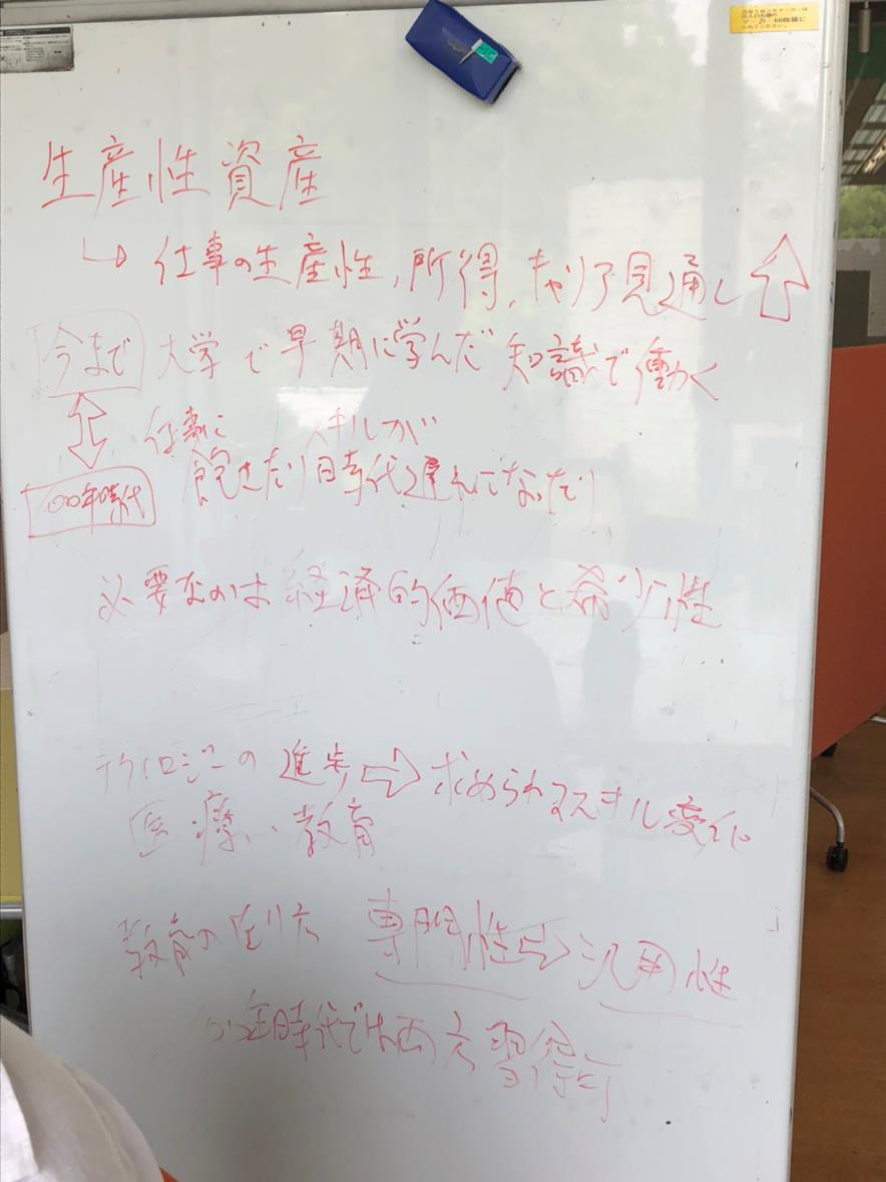 生産性資産
↳ 仕事の生産性, 所得, キャリア見通し ⇧
今まで 大学で早期に学んだ知識で働く
⇕ 仕事に スキルが
100年時代 飽きたり 時代遅れになったり
必要なのは経済的価値と希少性
テクノロジーの進歩 ⇨ 求められるスキル変化
医療、教育
教育の在り方 専門性⇨汎用性
100年時代では両方習得可